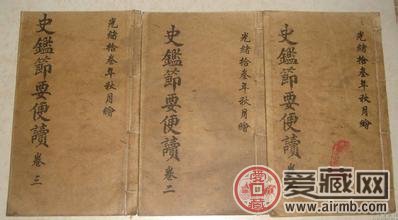 光緒拾叁年秋月繪
史鑑節要便讀
卷
光緒拾叁年秋月繪
史鑑節要便讀
卷二
光緒拾叁年秋月繪
史鑑節要便讀
卷三
爱藏网
www.airmb.com